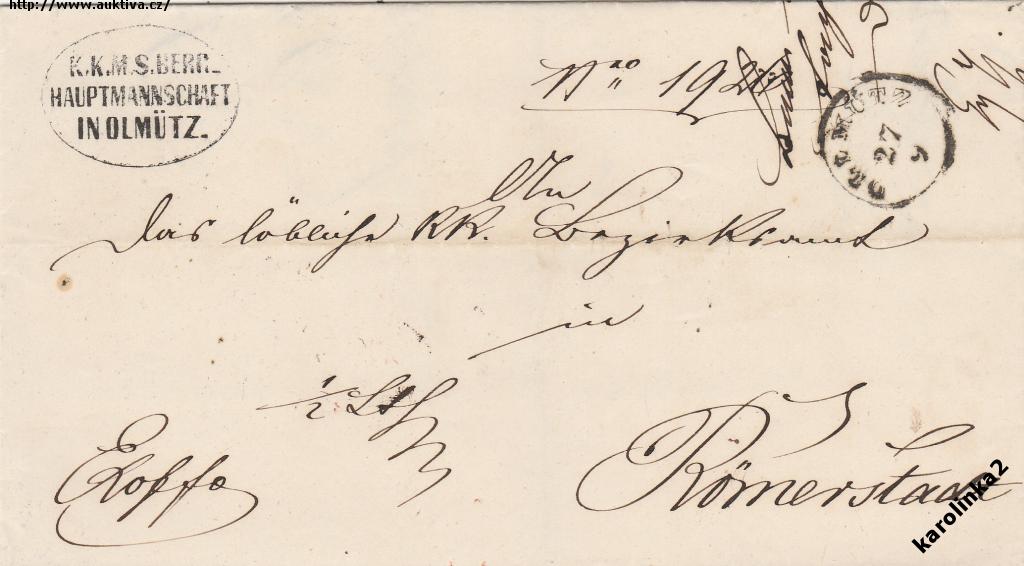 http://www.auktiva.cz/
K.K.M.S. BERG_
HAUPTMANNSCHAFT
IN OLMÜTZ.
Nro
OLLMÜTZ
27
9
An
das löbliche KK. Bezirksamt
in
1/2 Lth
Exoffo
Römerstadt
karolinka2